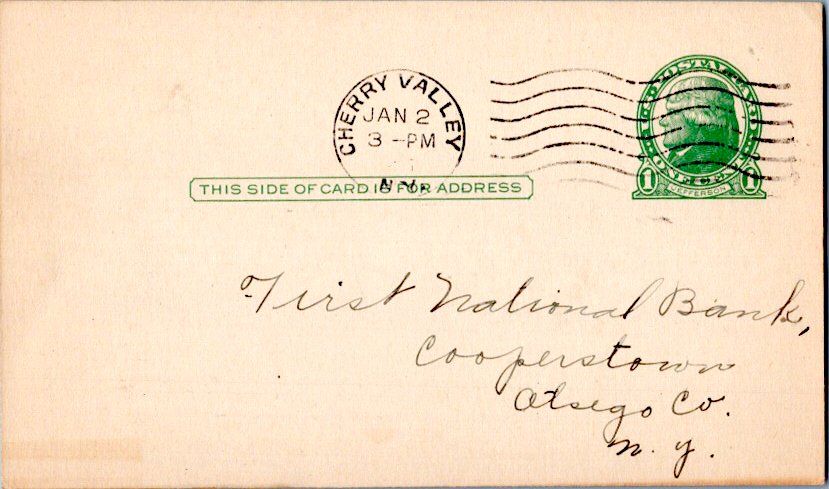 CHERRY VALLEY
JAN 2
3 -PM
N.Y.
U.S. POSTAL CARD
ONE CENT
1 JEFFERSON 1
THIS SIDE OF CARD IS FOR ADDRESS
First National Bank,
Cooperstown
Otsego Co.
N. Y.